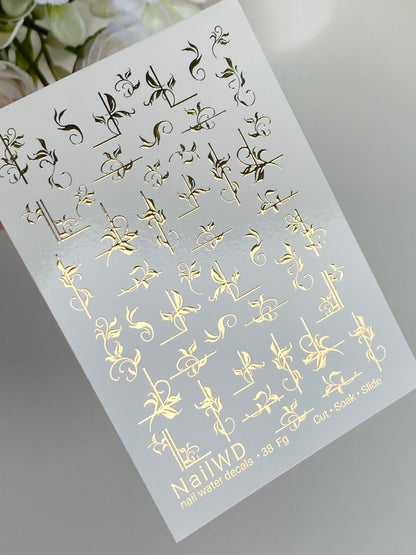 NailWD
nail water decals • 38 Fg
Cut • Soak • Slide